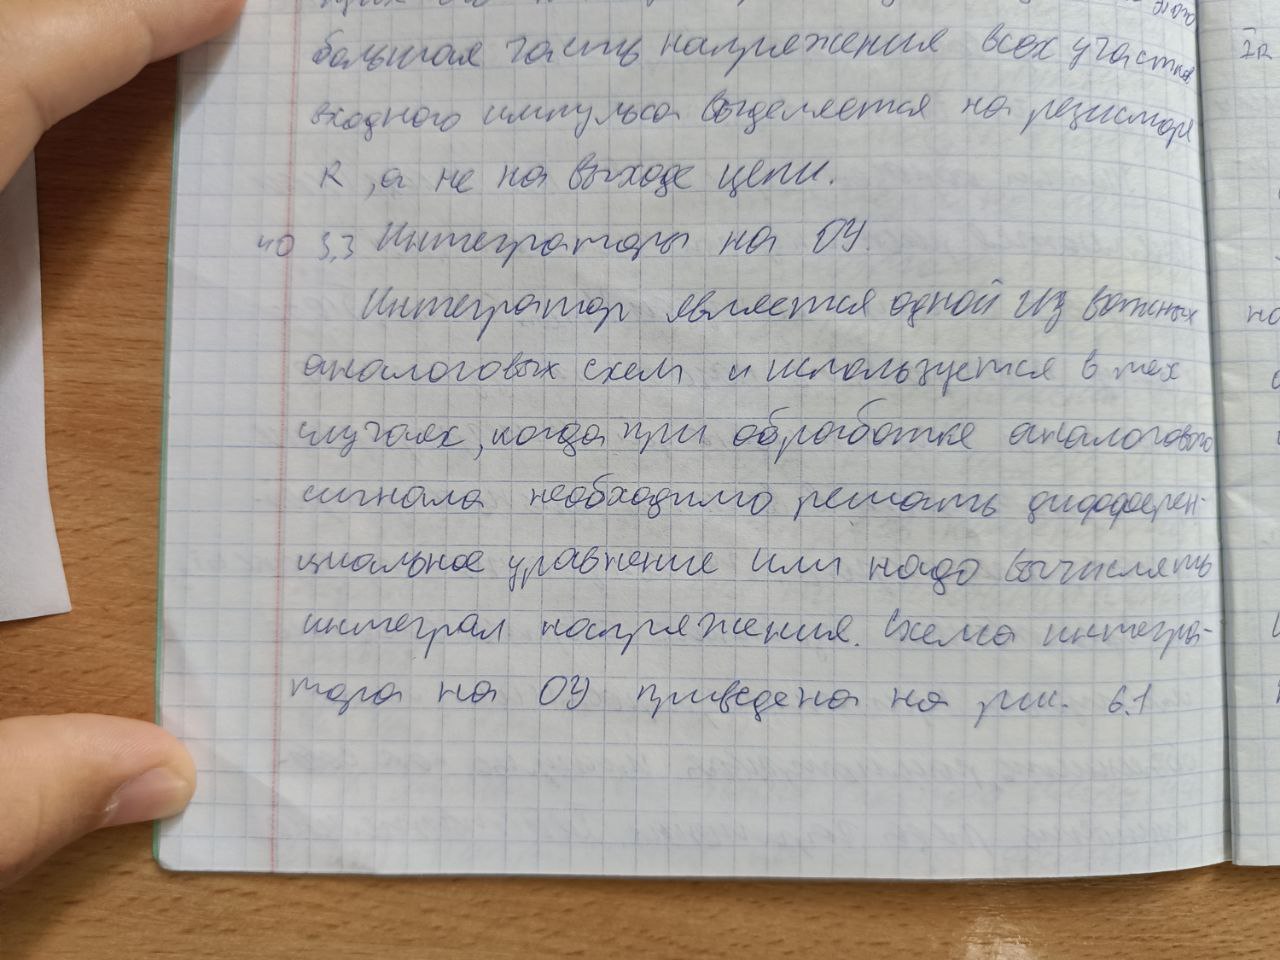 большая часть напряжения всех участков
входного импульса выделяется на резисторе
R, а не на выходе цепи.
40 3,3 Интеграторы на ОУ.
Интегратор является одной из важных
аналоговых схем и используется в тех
случаях, когда при обработке аналогового
сигнала необходимо решать дифферен-
циальное уравнение или надо вычислять
интеграл напряжения. Схема интегра-
тора на ОУ приведена на рис. 6.1